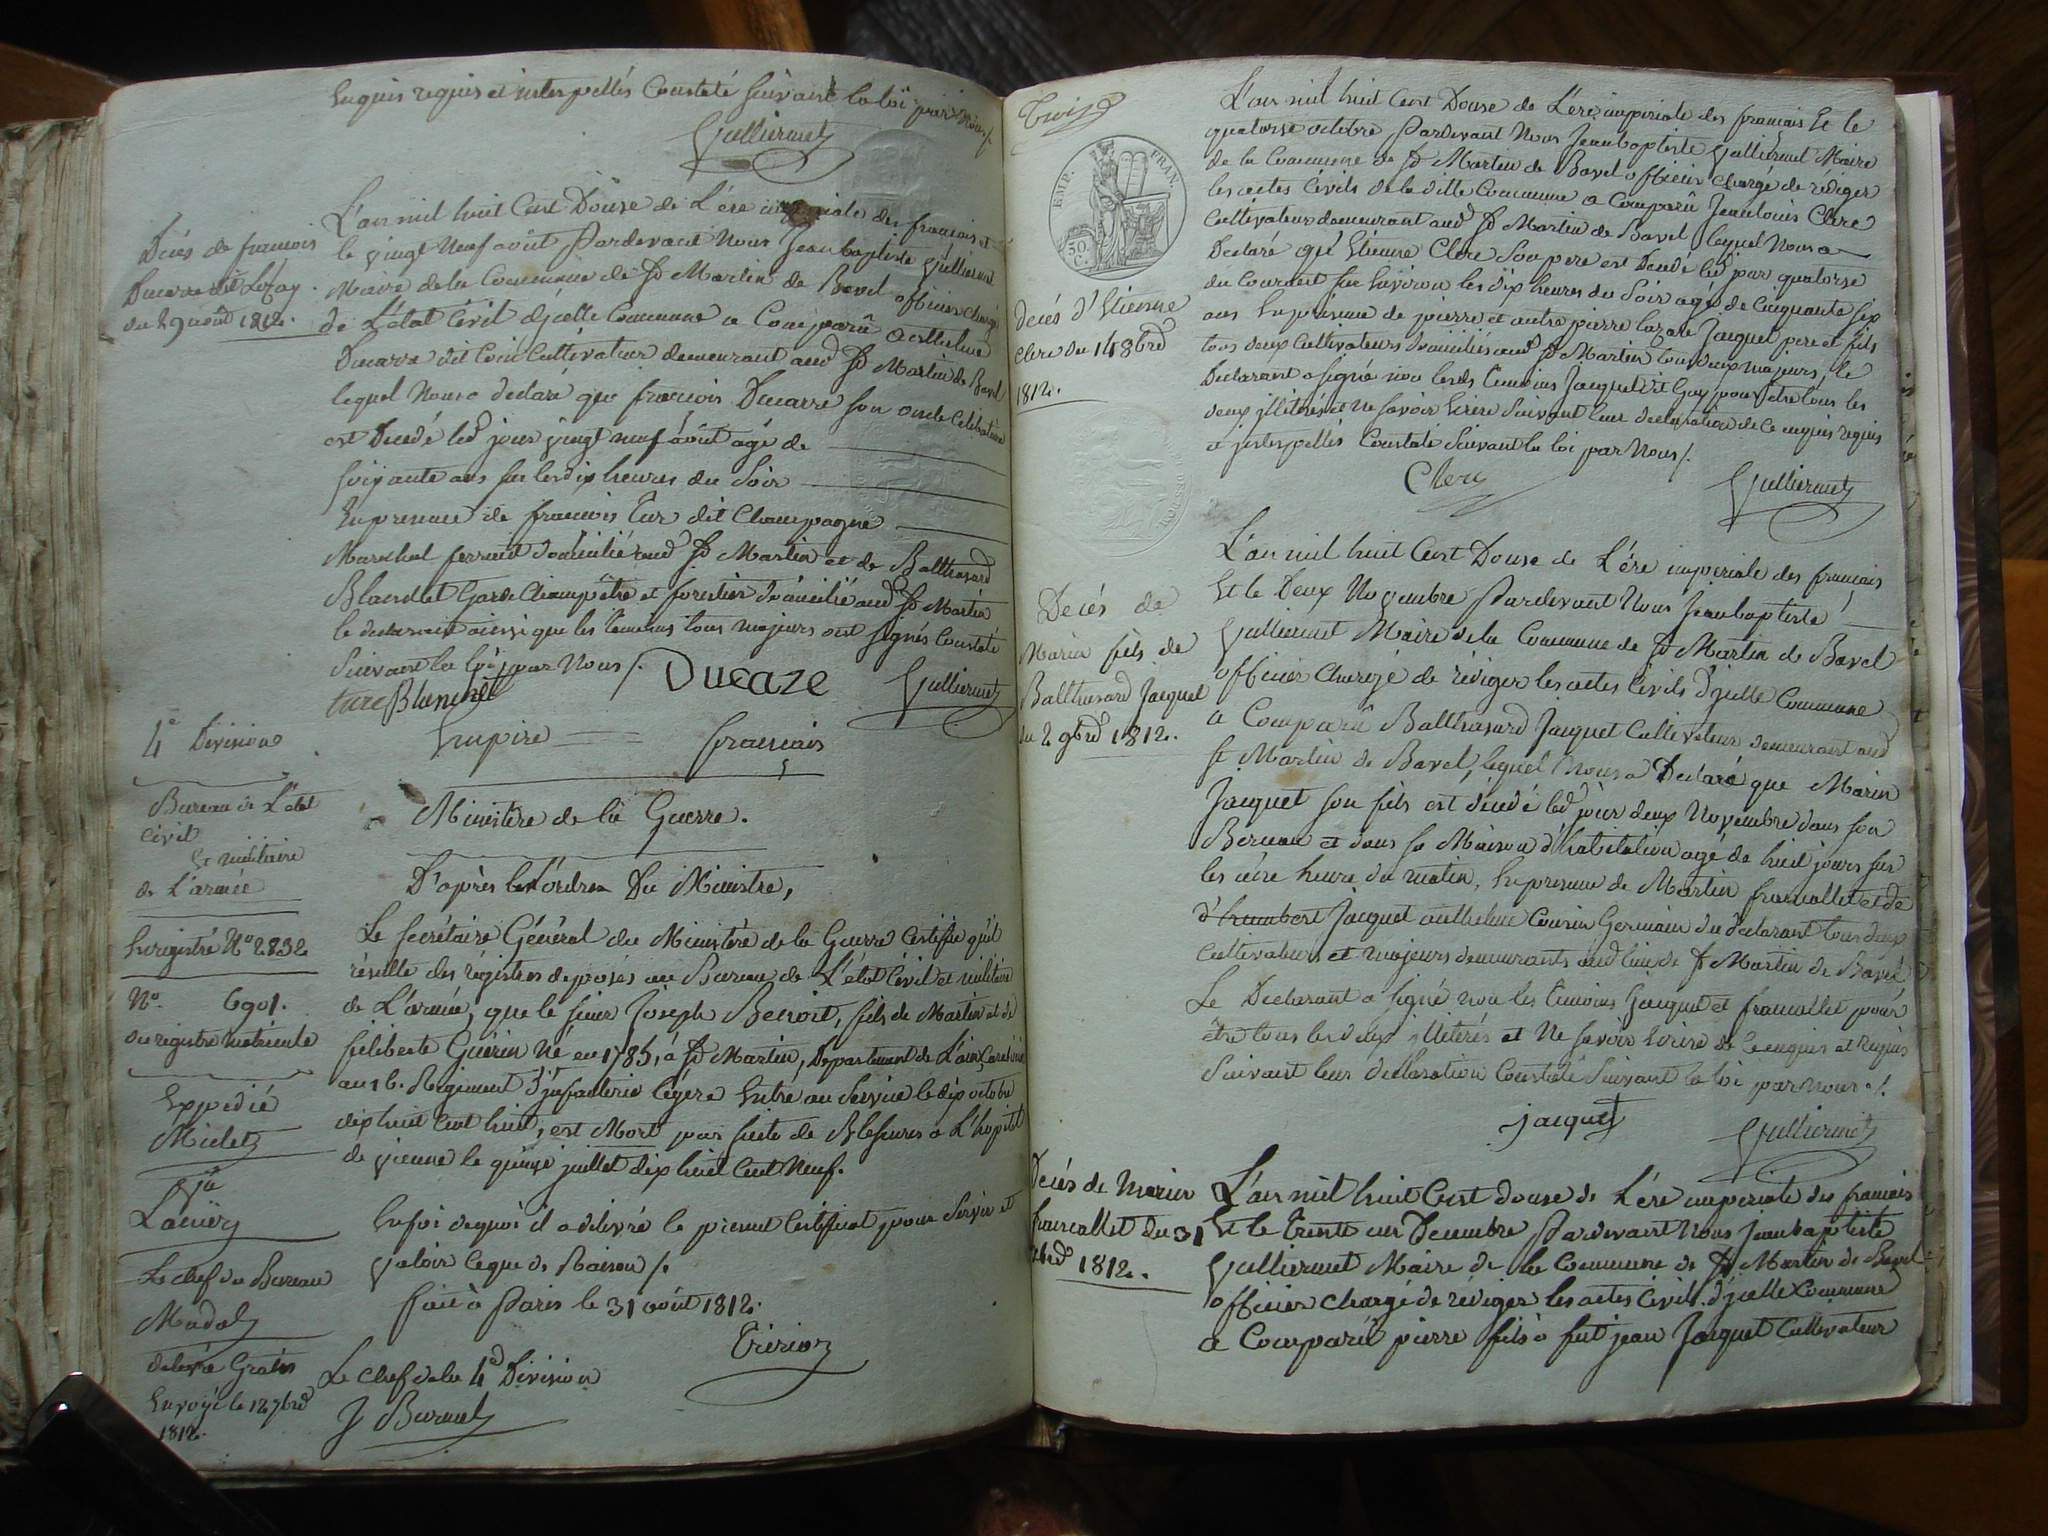 Enquis requis et interpellés Constaté suivant la loi par Nous /.
Gullierme
Décés de francois
Ducarre dit Lozay.
du 29 août 1812.
L'an mil huit Cent Douse de L'ére impériale des français et
le vingt Neuf août Pardevant Nous Jeanbaptiste Gulliermet
Maire de la Commune de St Martin de Bavel officier chargé
de L'état Civil d'icelle Commune a Comparû anthelme
Ducarre dit Coin Cultivateur demeurant aud St Martin de Bavel
lequel Nous a declaré que francois Ducarre son oncle Célibataire
est Decedé led jour vingt neuf août agé de
soixante ans sur les dix heures du Soir
En presence de francois Tur dit Champagne
Marechal ferrant domicilié aud St Martin et de Balthasard
Blanchet Garde Champêtre et forestier domicilié aud St Martin
le declarant ainsi que les temoins tous majeurs ont signés Constaté
Suivant la loi par Nous /.
Ducaze
Gulliermet
ture Blanchet
4e Division
Bureau de L'état
Civil
Et militaire
de L'armée
Enregistré No 2832
No. 6901.
du registre matricule
Expedié
Miclet
Vu
Lanier
Le chef du Bureau
Madal
délivré Gratis
Envoyé le 12 7bre
1812.
Empire français
Ministère de la Guerre.
D'après les ordres Du Ministre,
Le Secrétaire Général du Ministére de la Guerre Certifie qu'il
résulte des régistres deposés au Bureau de L'état Civil et militaire
de L'armée, que le sieur Joseph Benoit, fils de Martin et de
filiberte Guérin Né en 1785, à St Martin, Département de L'ain, Carabinié
au 16. Régiment d'infanterie légere Entré au Service le dix octobre
dix huit Cent huit, est Mort par suite de Blessures a L'hopital
de vienne le quinze juillet dix huit Cent Neuf.
En foi de quoi il a délivré le présent Certificat pour Servir et
Valoir Ce que de Raison /.
fait à Paris le 31 août 1812.
Tririon
Le Chef de la 4e Division
J Barnet
Trois
EMP. FRAN.
50
C.
L'an mil huit Cent Douse de L'ére impériale des français Et le
quatorse octobre Pardevant Nous Jeanbaptiste Gulliermet Maire
de la Commune de St Martin de Bavel officier chargé de rédiger
les actes Civils de la ditte Commune a Comparû Jeanlouis Clerc
Cultivateur demeurant aud St Martin de Bavel, lequel Nous a
Declaré qué Etienne Clerc Son pere est Decédé led jour quatorse
du Courant sur Environ les dix heures du Soir agé de Cinquante six
ans En présence de pierre et autre pierre lazare Jacquet pere et fils
tous deux Cultivateurs domiciliés aud St Martin tous deux majeurs, le
Declarant a signé non lesds temoins Jacquet dit Gay pour être tous les
deux illiterés et ne savoir Ecrire Suivant leur declaration de Ce enquis requis
et interpellés Constaté Suivant la loi par Nous /.
Clerc
Gulliermet
Décés d'Etienne
Clerc du 14 8bre
1812.
L'an mil huit Cent Douse de L'ére impériale des français
Et le Deux Novembre Pardevant Nous Jeanbaptiste
Gulliermet Maire de la Commune de St Martin de Bavel
officier Chargé de rédiger les actes Civils d'icelle Commune
a Comparû Balthasard Jacquet Cultivateur demeurant aud
St Martin de Bavel, lequel Nous a Declaré que Marin
Jacquet son fils est décedé led jour deux Novembre dans son
Berceau et dans sa Maison d'habitation agé de huit jours sur
les heure du matin, En presence de Martin francallet et de
d'humbert Jacquet anthelme Cousin Germain du declarant tous deux
Cultivateurs et majeurs demeurants aud lieu de St Martin de Bavel
Le Declarant a signé non les temoins Jacquet et francallet pour
être tous les deux illiterés et Ne savoir Ecrire de Ce enquis et requis
Suivant leur declaration Constaté Suivant la loi par nous /.
jacquet
Gulliermet
Decés de
Marin fils de
Balthasard Jacquet
du 2 9bre 1812.
Decés de Marin
francallet du 31
Xbre 1812.
L'an mil huit Cent douse de L'ére impériale des français
Et le trente un Decembre Pardevant Nous Jeanbaptiste
Gulliermet Maire de la Commune de St Martin de Bavel
officier chargé de rédiger les actes Civils d'icelle Commune
a Comparû pierre fils à fut jean Jacquet Cultivateur